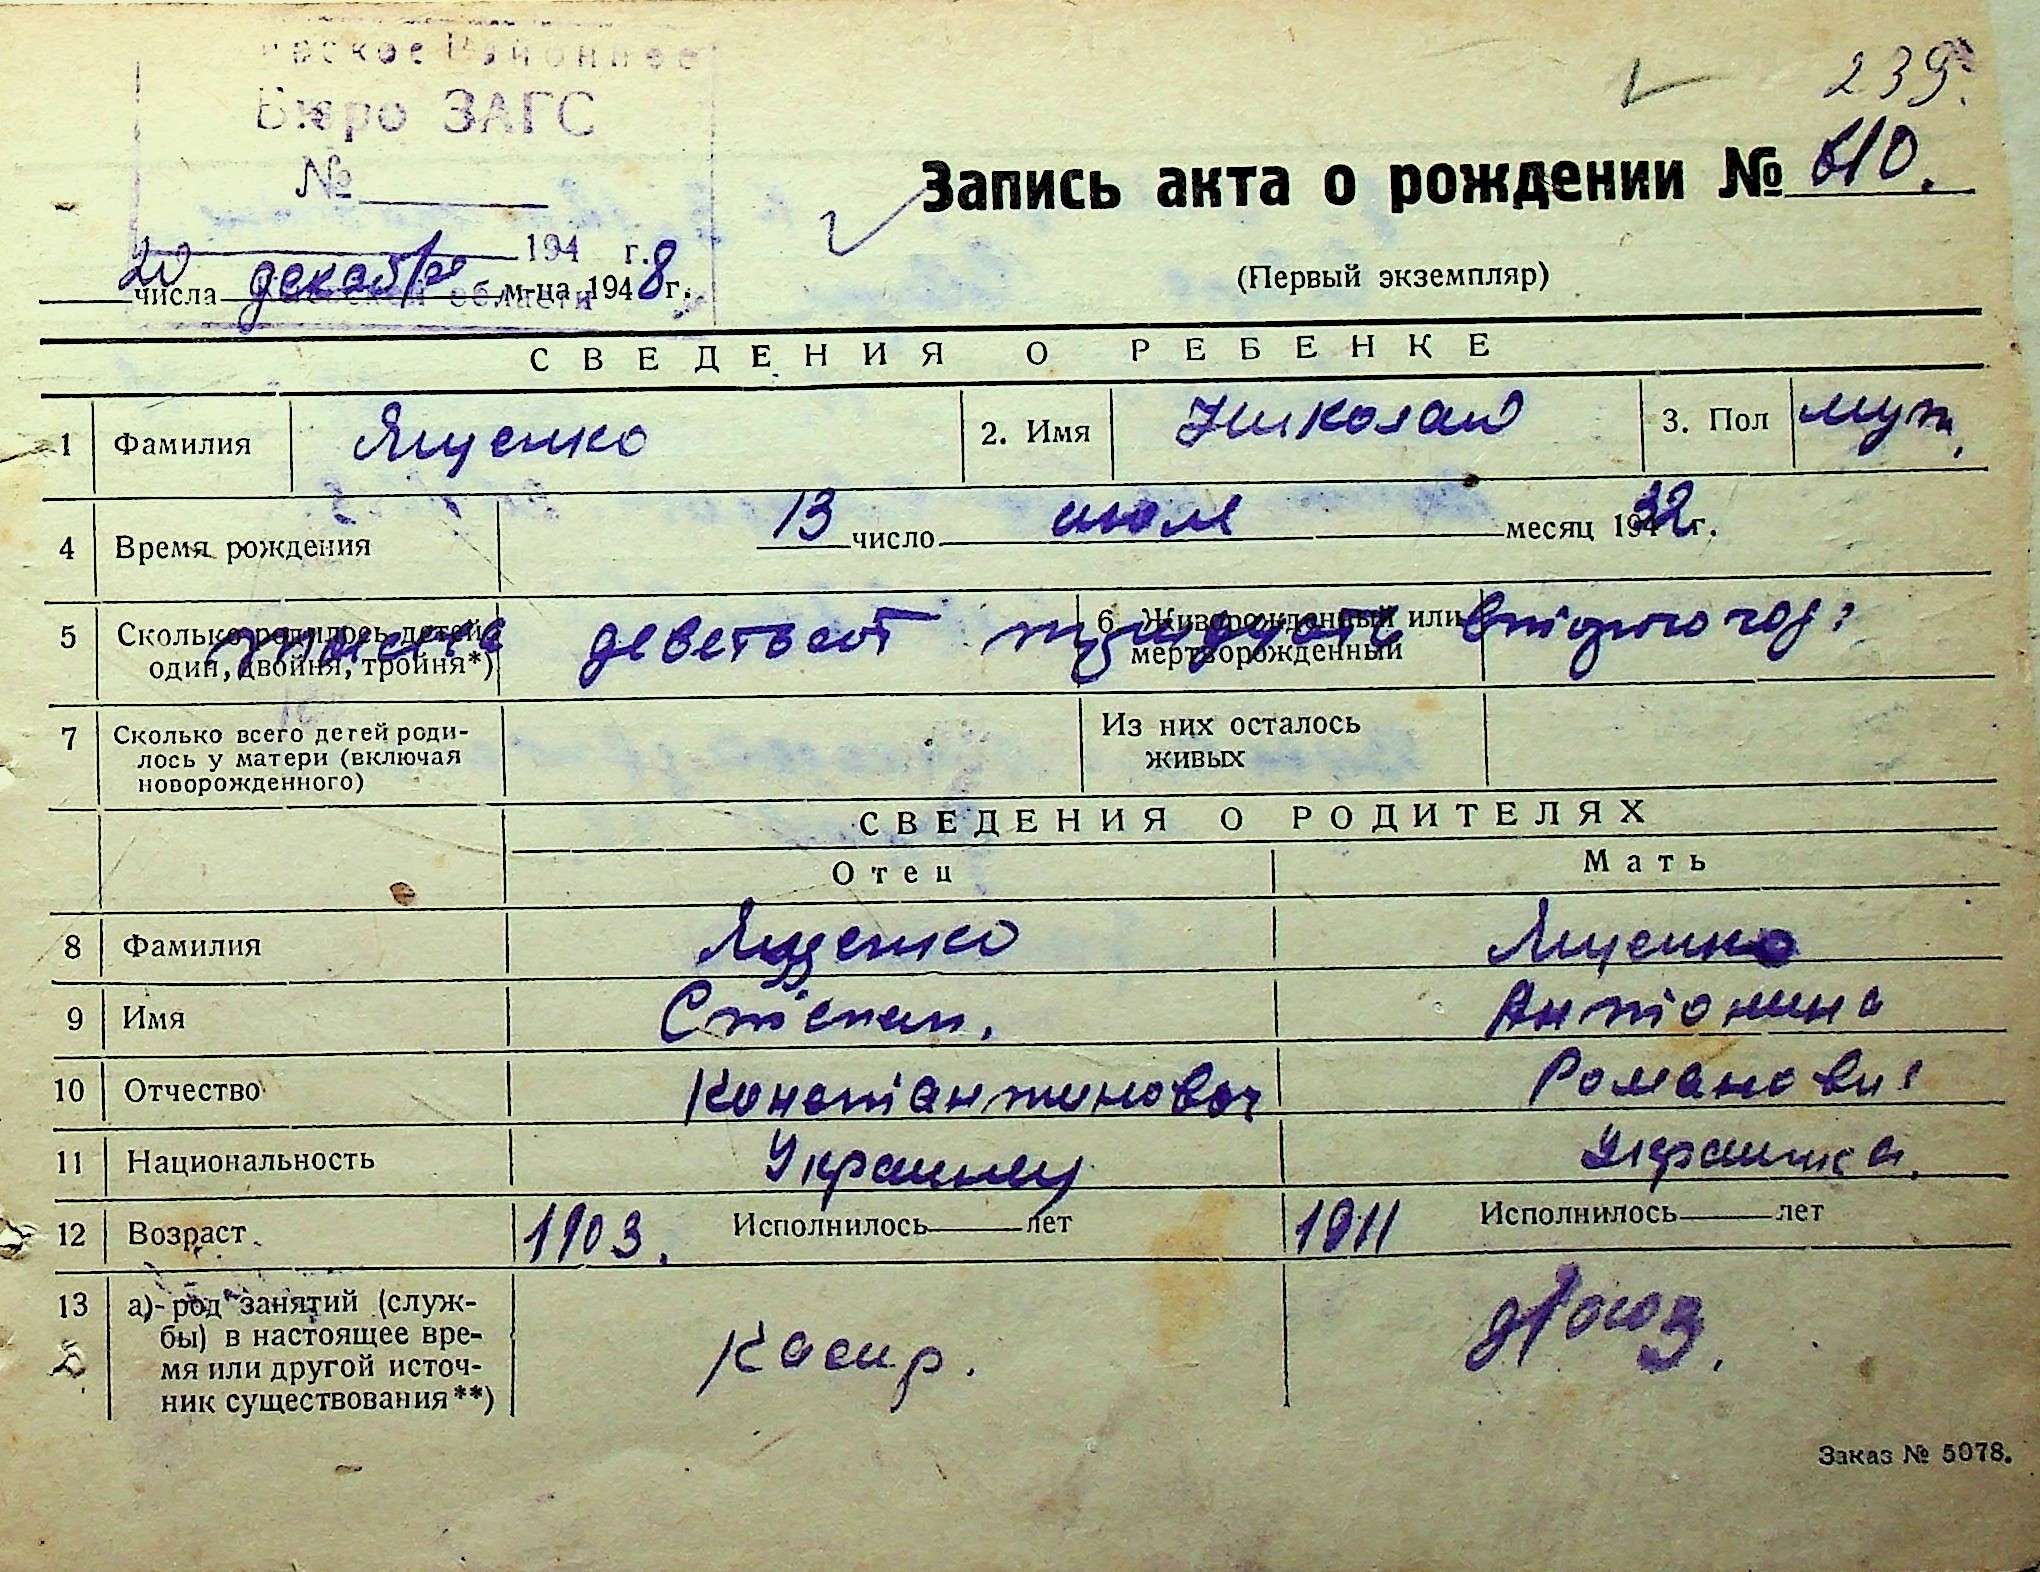 Районное
239.
Бюро ЗАГС
№
Запись акта о рождении № 610.
194 г.
20 числа декабря м-ца 1948 г.
области
(Первый экземпляр)
СВЕДЕНИЯ О РЕБЕНКЕ
1 Фамилия Ященко 2. Имя Николай 3. Пол муж.
4 Время рождения 13 число июля месяц 1932 г.
5 Сколько родилось детей один, двойня, тройня*) 6. Живорожденный или мертворожденный
тысяча девятьсот тридцать второго года
7 Сколько всего детей роди-
лось у матери (включая
новорожденного)
Из них осталось
живых
СВЕДЕНИЯ О РОДИТЕЛЯХ
Отец Мать
8 Фамилия Ященко Ященко
9 Имя Степан. Антонина
10 Отчество Константинович Романовна
11 Национальность Украинец Украинка.
12 Возраст 1903. Исполнилось лет 1911 Исполнилось лет
13 а)-род занятий (служ-
бы) в настоящее вре-
мя или другой источ-
ник существования**)
Касир. д/хоз.
Заказ № 5078.